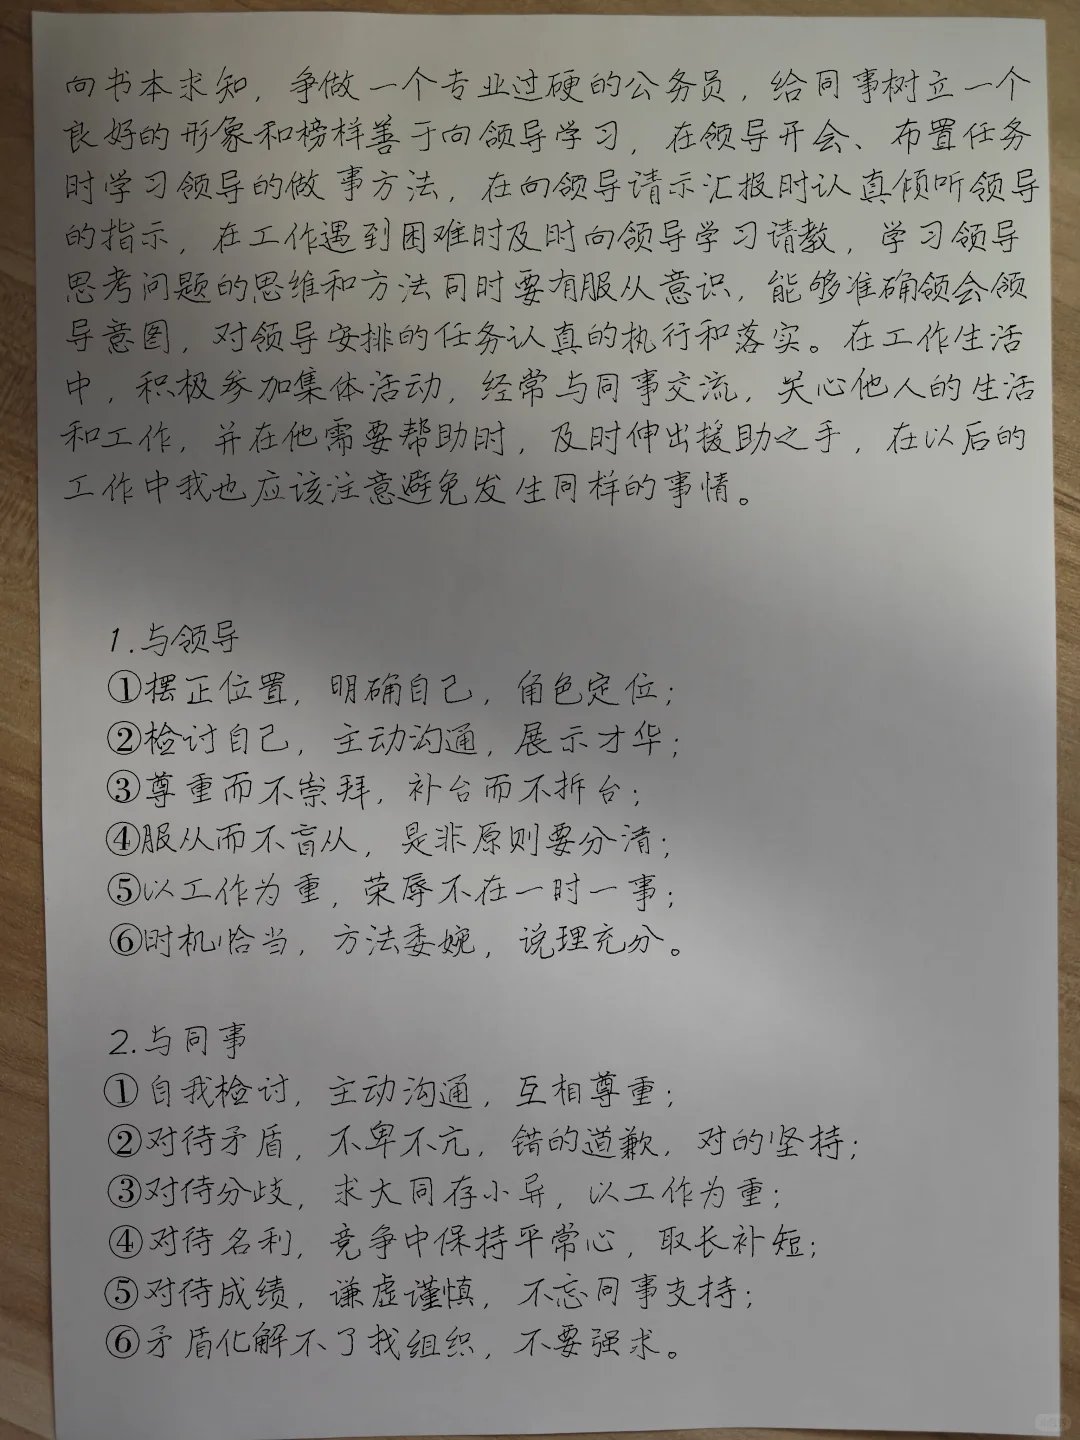 向书本求知，争做一个专业过硬的公务员，给同事树立一个
良好的形象和榜样善于向领导学习，在领导开会、布置任务
时学习领导的做事方法，在向领导请示汇报时认真倾听领导
的指示，在工作遇到困难时及时向领导学习请教，学习领导
思考问题的思维和方法同时要有服从意识，能够准确领会领
导意图，对领导安排的任务认真的执行和落实。在工作生活
中，积极参加集体活动，经常与同事交流，关心他人的生活
和工作，并在他需要帮助时，及时伸出援助之手，在以后的
工作中我也应该注意避免发生同样的事情。
1.与领导
①摆正位置，明确自己，角色定位；
②检讨自己，主动沟通，展示才华；
③尊重而不崇拜，补台而不拆台；
④服从而不盲从，是非原则要分清；
⑤以工作为重，荣辱不在一时一事；
⑥时机恰当，方法委婉，说理充分。
2.与同事
①自我检讨，主动沟通，互相尊重；
②对待矛盾，不卑不亢，错的道歉，对的坚持；
③对待分歧，求大同存小异，以工作为重；
④对待名利，竞争中保持平常心，取长补短；
⑤对待成绩，谦虚谨慎，不忘同事支持；
⑥矛盾化解不了找组织，不要强求。